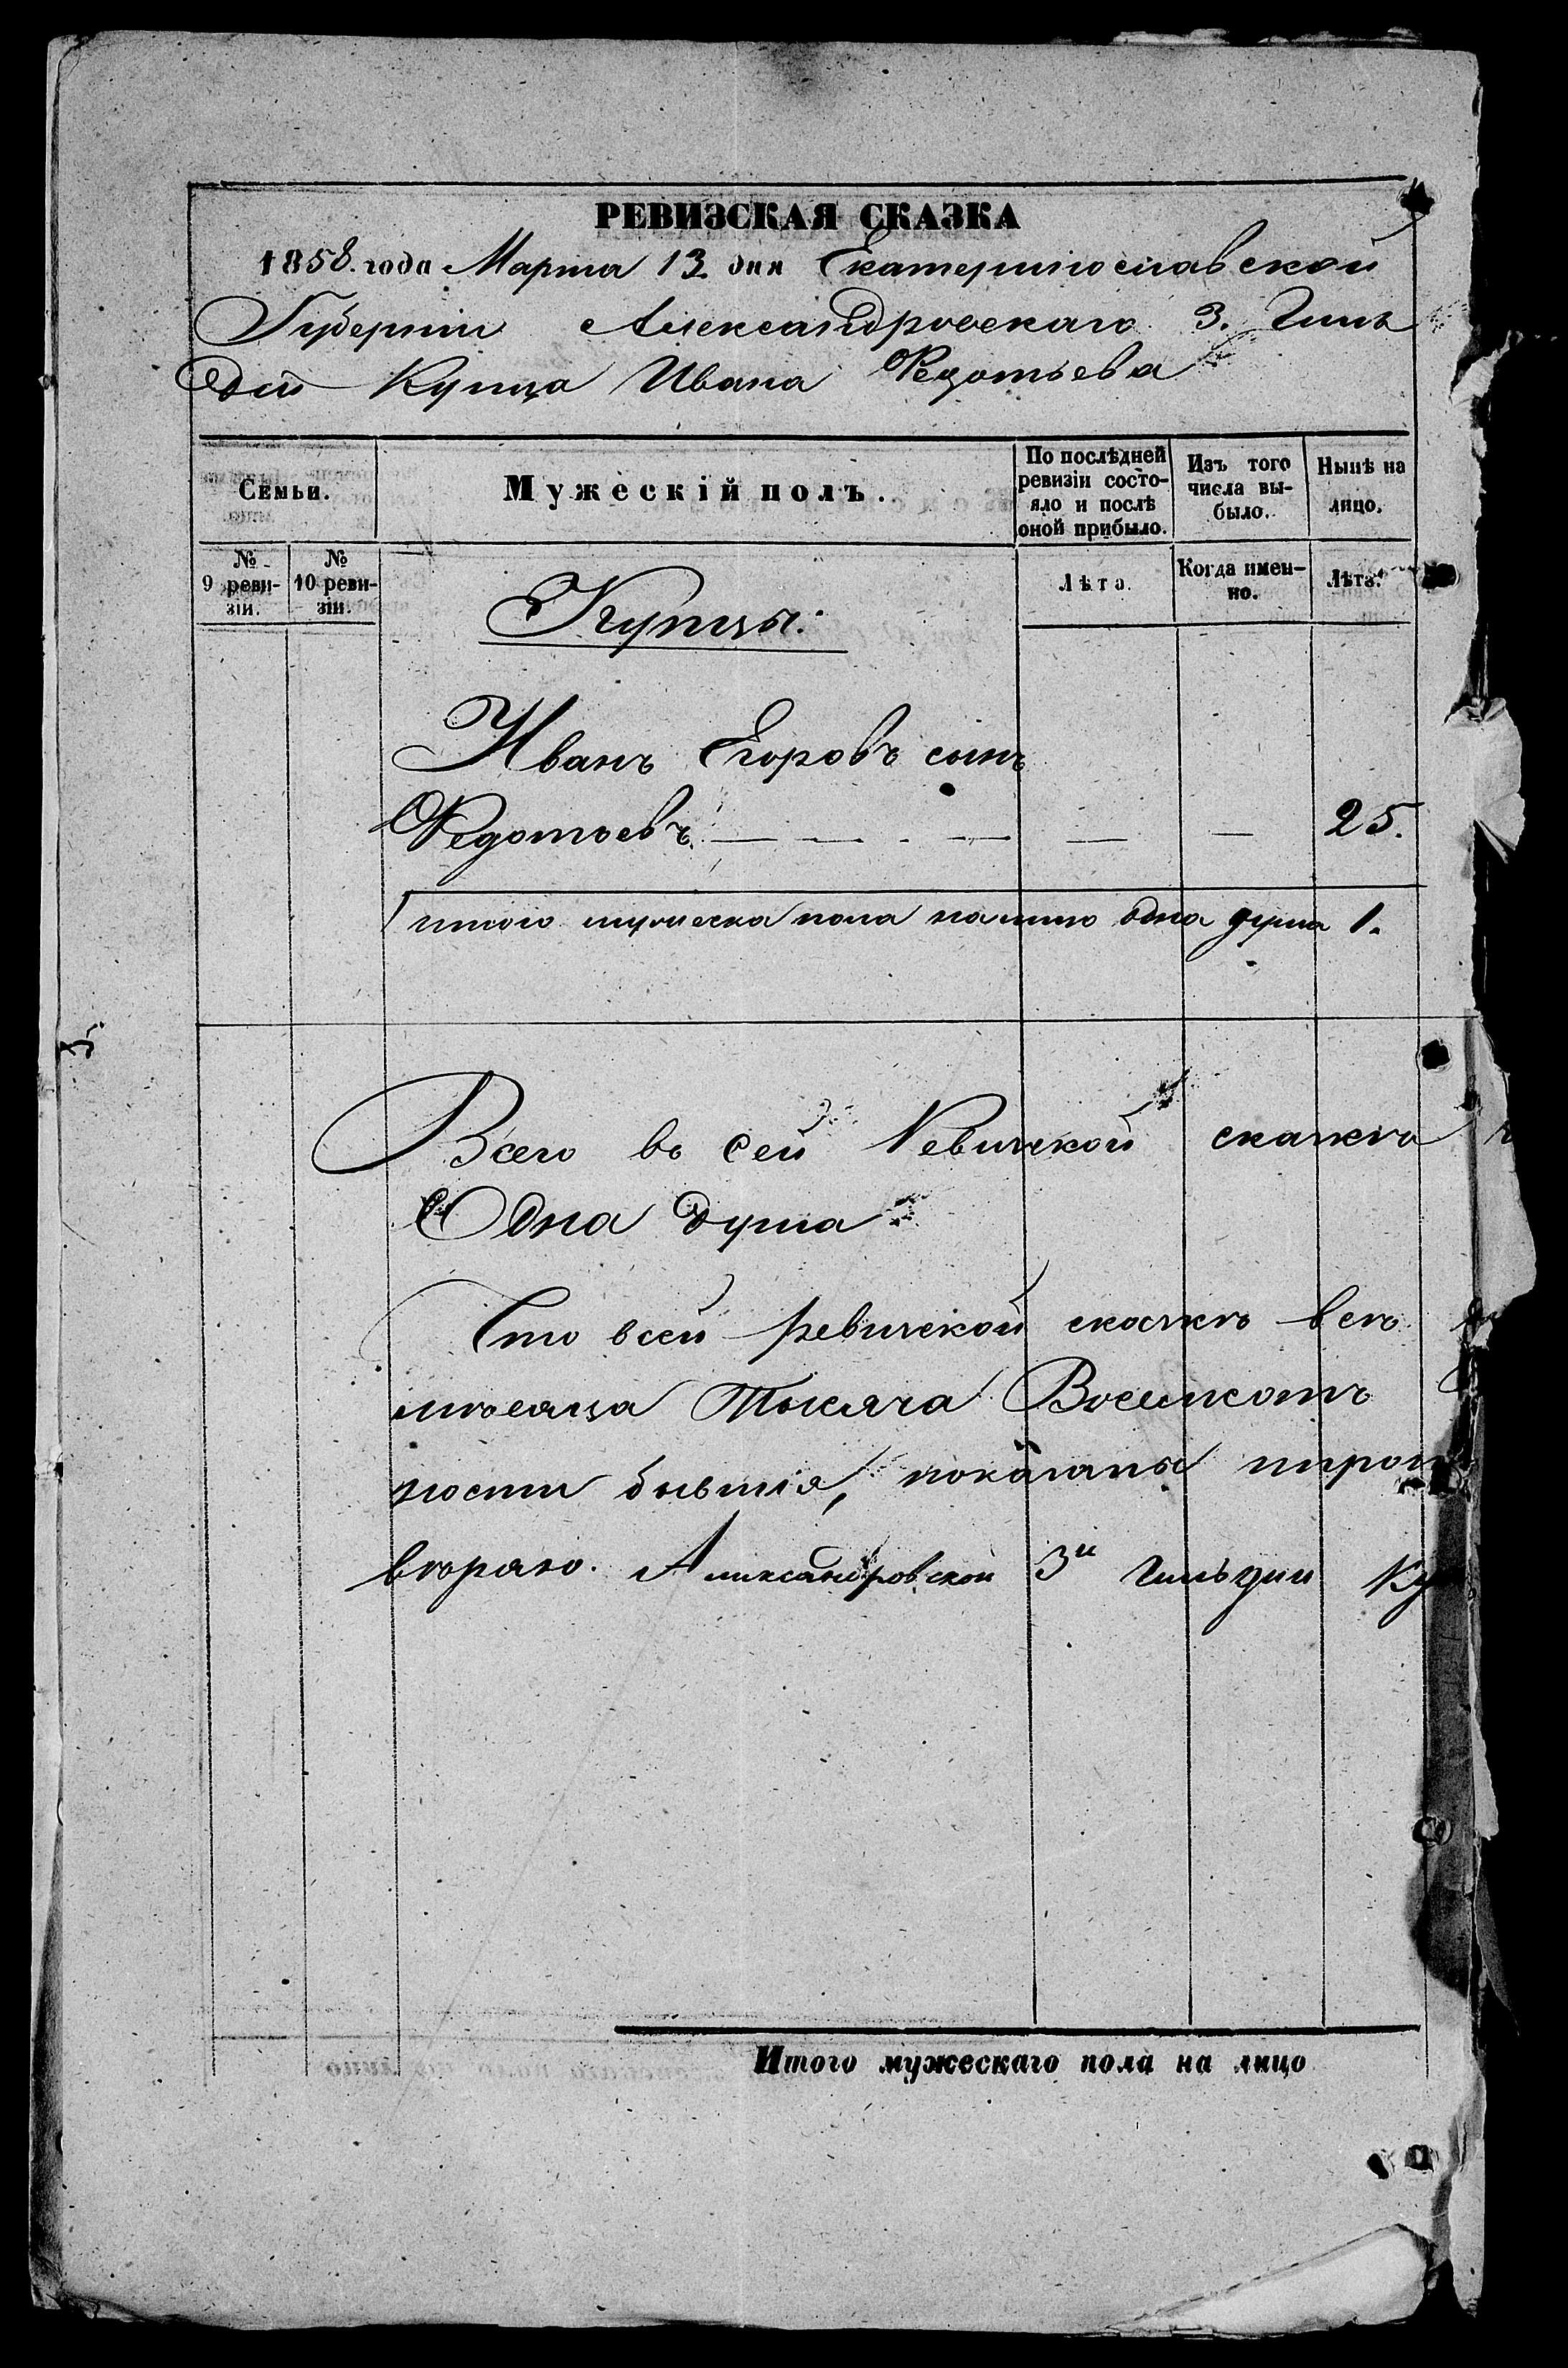 РЕВИЗСКАЯ СКАЗКА
1858. года Марта 13 дня Екатеринославской
Губернiи Александровскаго 3. Гиль
дiи Купца Ивана Федотьева
Семьи.
Мужескiй полъ.
По послѣдней ревизiи состо-
яло и послѣ оной прибыло.
Изъ того числа вы-
было.
Нынѣ на лицо.
№ 9 реви-
зiи.
№ 10 реви-
зiи.
Лѣта.
Когда имен-
но.
Лѣта.
Купцы.
Иванъ Егоровъ сынъ
Федотьевъ — — — — — 25.
итого мужеска пола на лицо одна душа 1.
Всего въ сей Ревизской сказкѣ
Одна душа
Что в сей ревизской сказкѣ всѣ
мѣсяца Тысяча Восемсотъ
ности бывшiя, показаны
вторяю. Александровской 3й гильдии Ку
Итого мужескаго пола на лицо